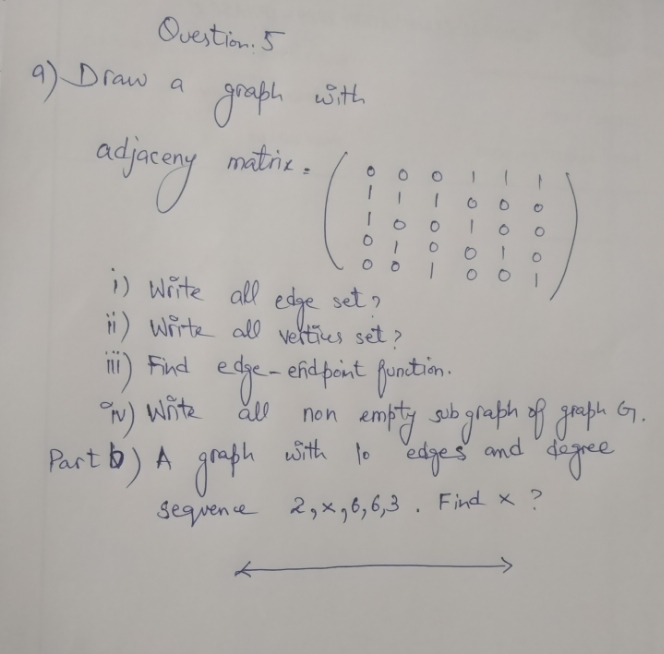 Question. 5
a) Draw a graph with
adjaceny matrix =
0 0 0 1 1 1
1 1 1 0 0 0
1 0 0 1 0 0
0 1 0 0 1 0
0 0 1 0 0 1
i) Write all edge set?
ii) Write all vertius set?
iii) Find edge-endpoint function.
iv) Write all non empty subgraph of graph G.
Part b) A graph with 10 edges and degree
sequence 2, x, 6, 6, 3. Find x?